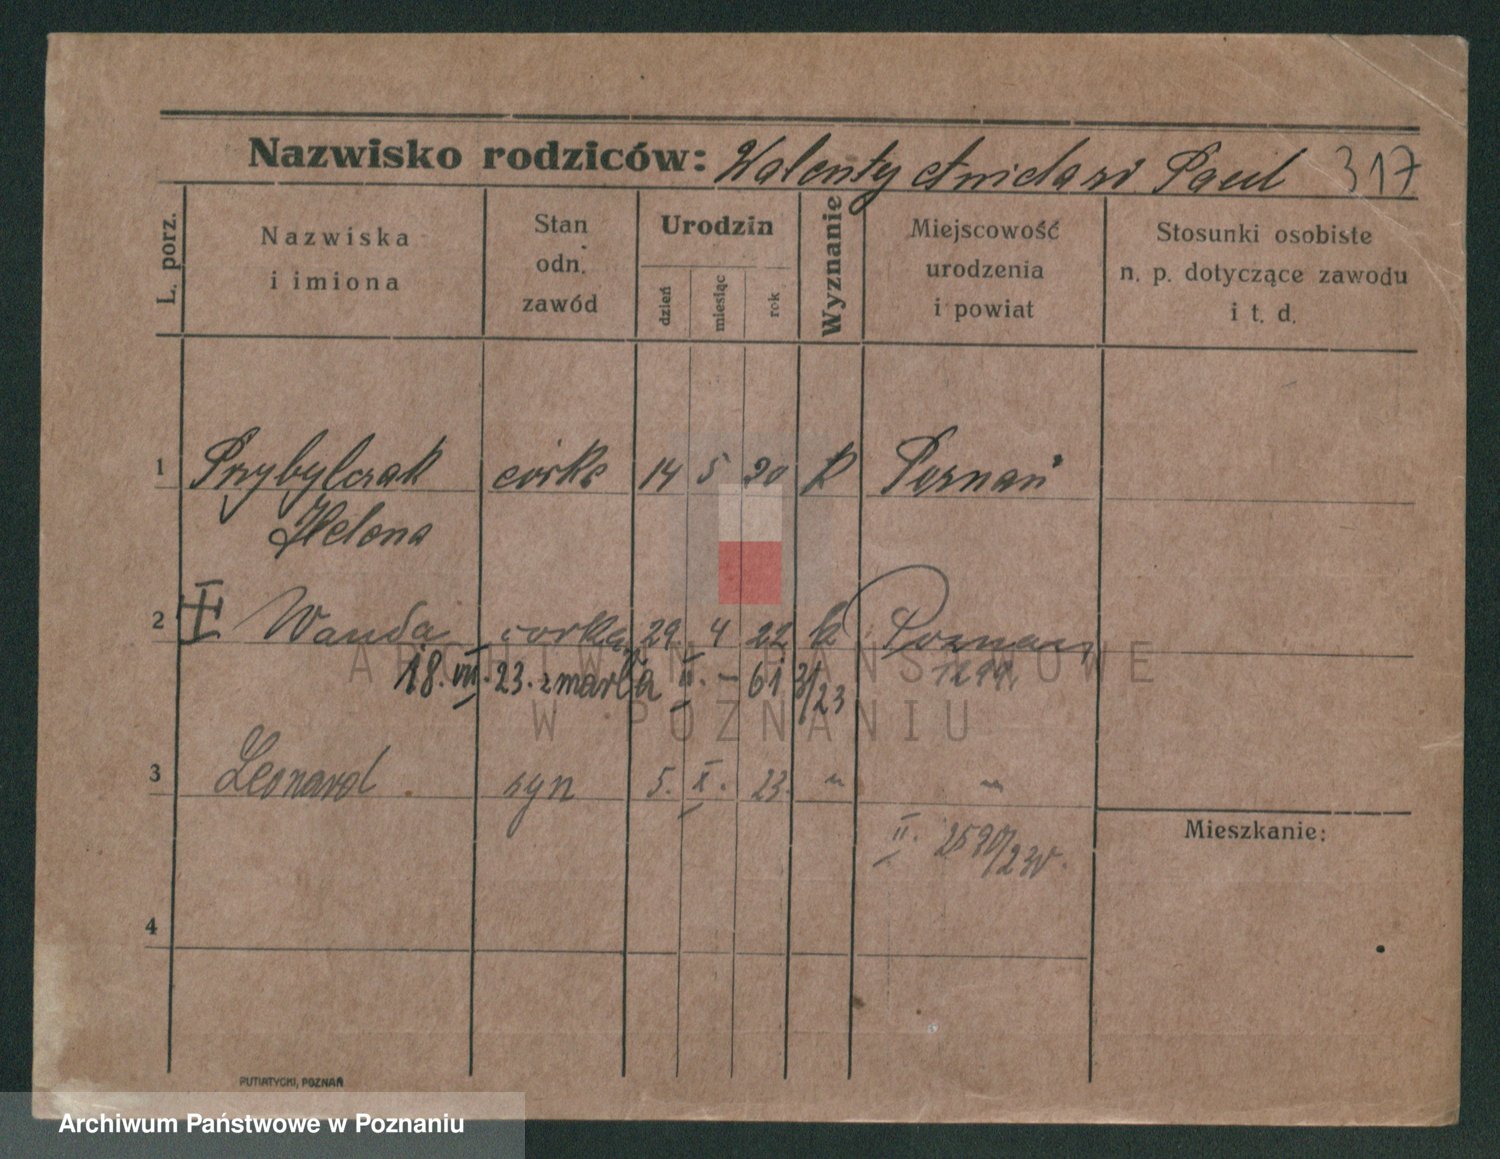 Nazwisko rodziców: Walenty 317
L. porz.
Nazwiska
i imiona
Stan
odn.
zawód
Urodzin
dzień
miesiąc
rok
Wyznanie
Miejscowość
urodzenia
i powiat
Stosunki osobiste
n. p. dotyczące zawodu
i t. d.
1 Przybylczak córka 14 5 20 k Poznań
Helena
2 Wanda córka 29 4 22 k Poznań
18. VII. 23. zmarła II. - 61 3/23
3 Leonard syn 5. X. 23. " "
II. 2590/23
Mieszkanie:
4
PUTIATYCKI, POZNAŃ
ARCHIWUM PAŃSTWOWE
W POZNANIU
Archiwum Państwowe w Poznaniu